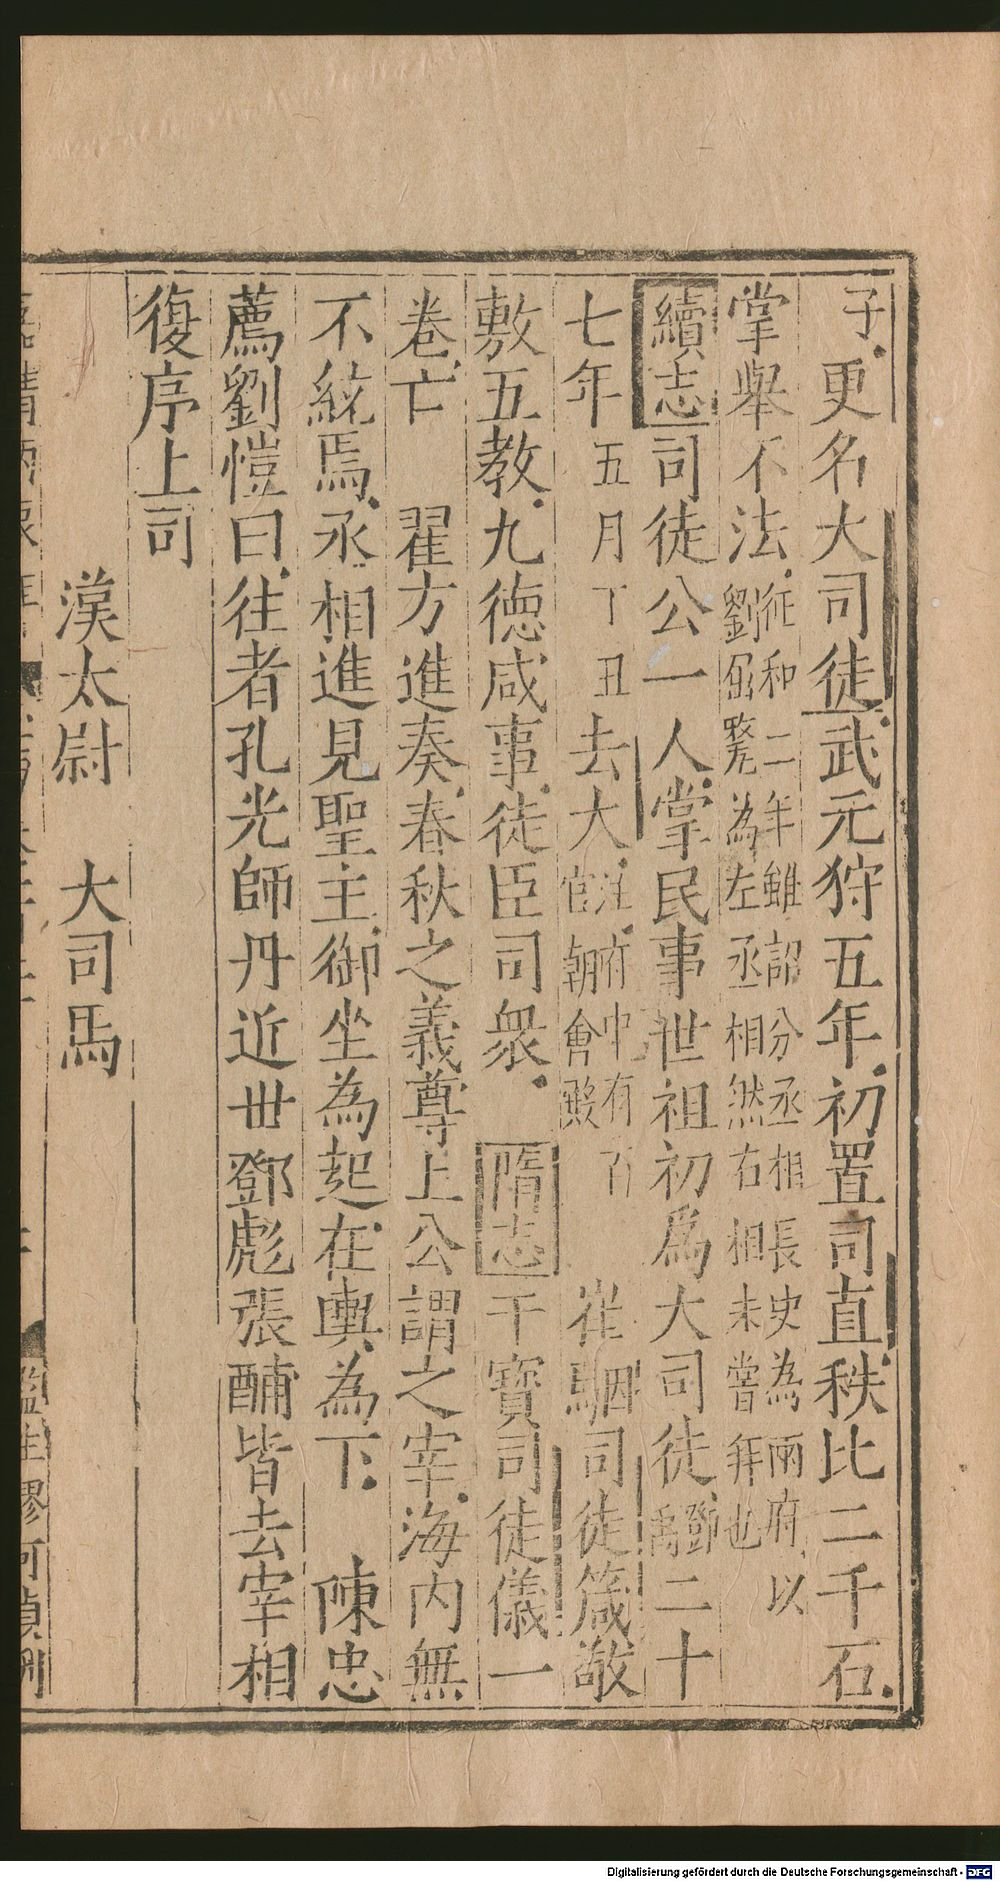 子更名大司徒武元狩五年初置司直秩比二千石
掌舉不法征和二年雖詔分丞相長史為兩府以劉屈氂為左丞相然右相未嘗拜也
續志司徒公一人掌民事世祖初爲大司徒鄧禹二十
七年五月丁丑去大注府中有百官朝會殿崔駰司徒箴敬
敷五教九德咸事徒臣司衆隋志干寶司徒儀一
卷亡翟方進奏春秋之義尊上公謂之宰海内無
不統焉丞相進見聖主御坐為起在輿為下陳忠
薦劉愷曰往者孔光師丹近世鄧彪張酺皆去宰相
復序上司
漢太尉大司馬
Digitalisierung gefördert durch die Deutsche Forschungsgemeinschaft - DFG